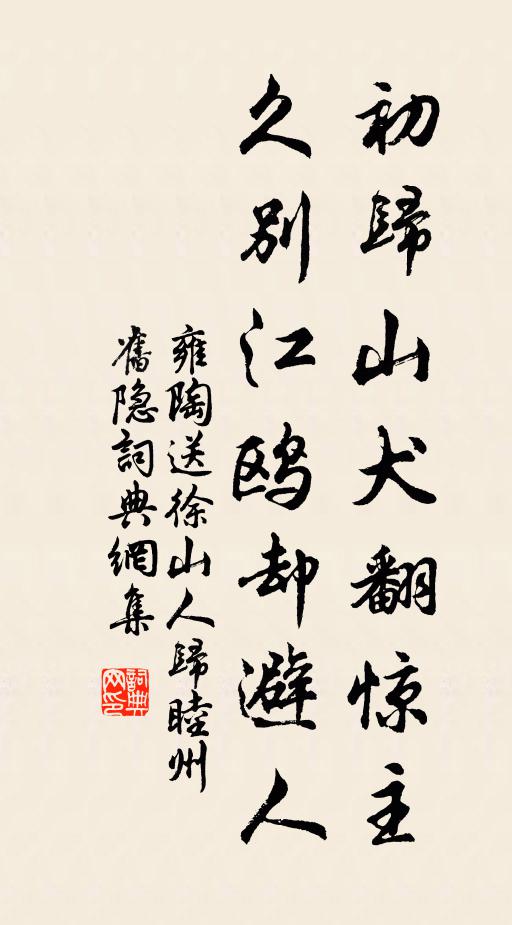 初歸山犬翻惊主
久别江鸥却避人
雍陶送徐山人歸睦州
舊隐詞典網集
詞典
网印